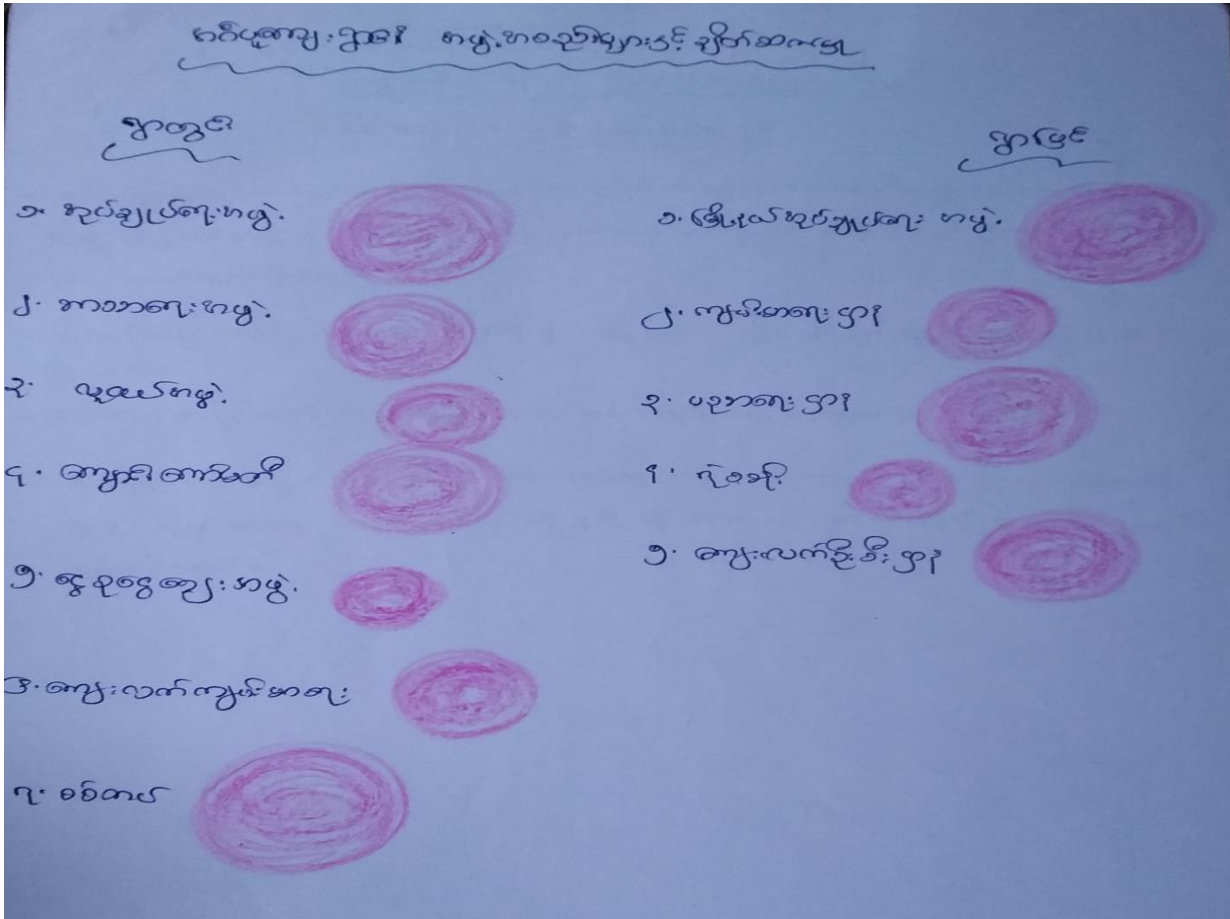 ကျေးရွာ၏ အဖွဲ့အစည်းများနှင့် ချိတ်ဆက်မှု
ရွာတွင်း
ရွာပြင်
၁. အုပ်ချုပ်ရေးအဖွဲ့.
၂. ဘာသာရေးအဖွဲ့.
၃. လူငယ်အဖွဲ့.
၄. ကျောင်းကော်မတီ
၅. ငွေစုငွေချေးအဖွဲ့.
၆. ကျေးလက်ကျန်းမာရေး
၇. စစ်တပ်
၁. မြို့နယ်အုပ်ချုပ်ရေး အဖွဲ့.
၂. ကျန်းမာရေးဌာန
၃. ပညာရေးဌာန
၄. ရဲစခန်း
၅. ကျေးလက်ဦးစီးဌာန